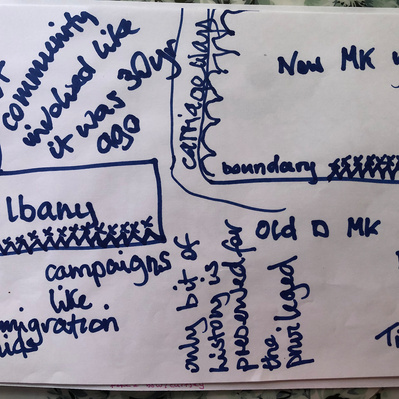 community
involved like
it was 30yr
ago
carriageway
Now MK
boundary
lbany
Old D MK
campaigns
like
migration
only bit of
history is
preserved for
the
privileged
Ti